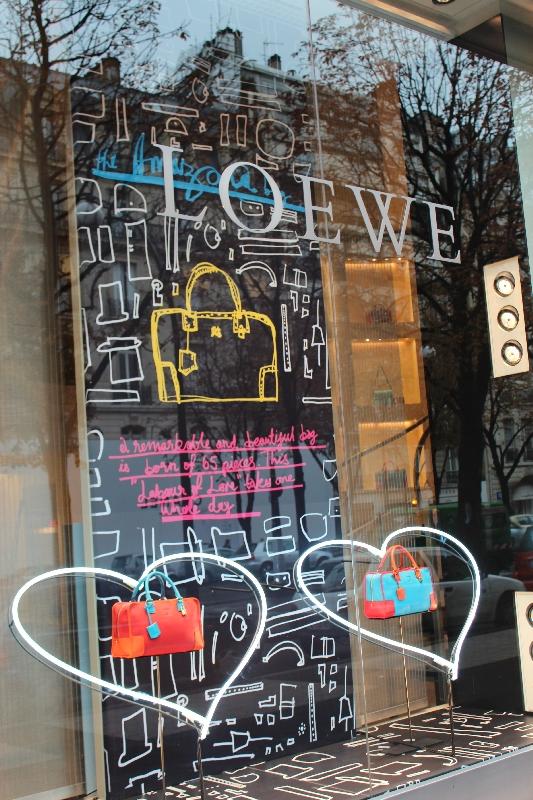 the Amazona bag
LOEWE
a remarkable and beautiful bag
is born of 65 pieces. This
"Labour of Love" takes one
whole day